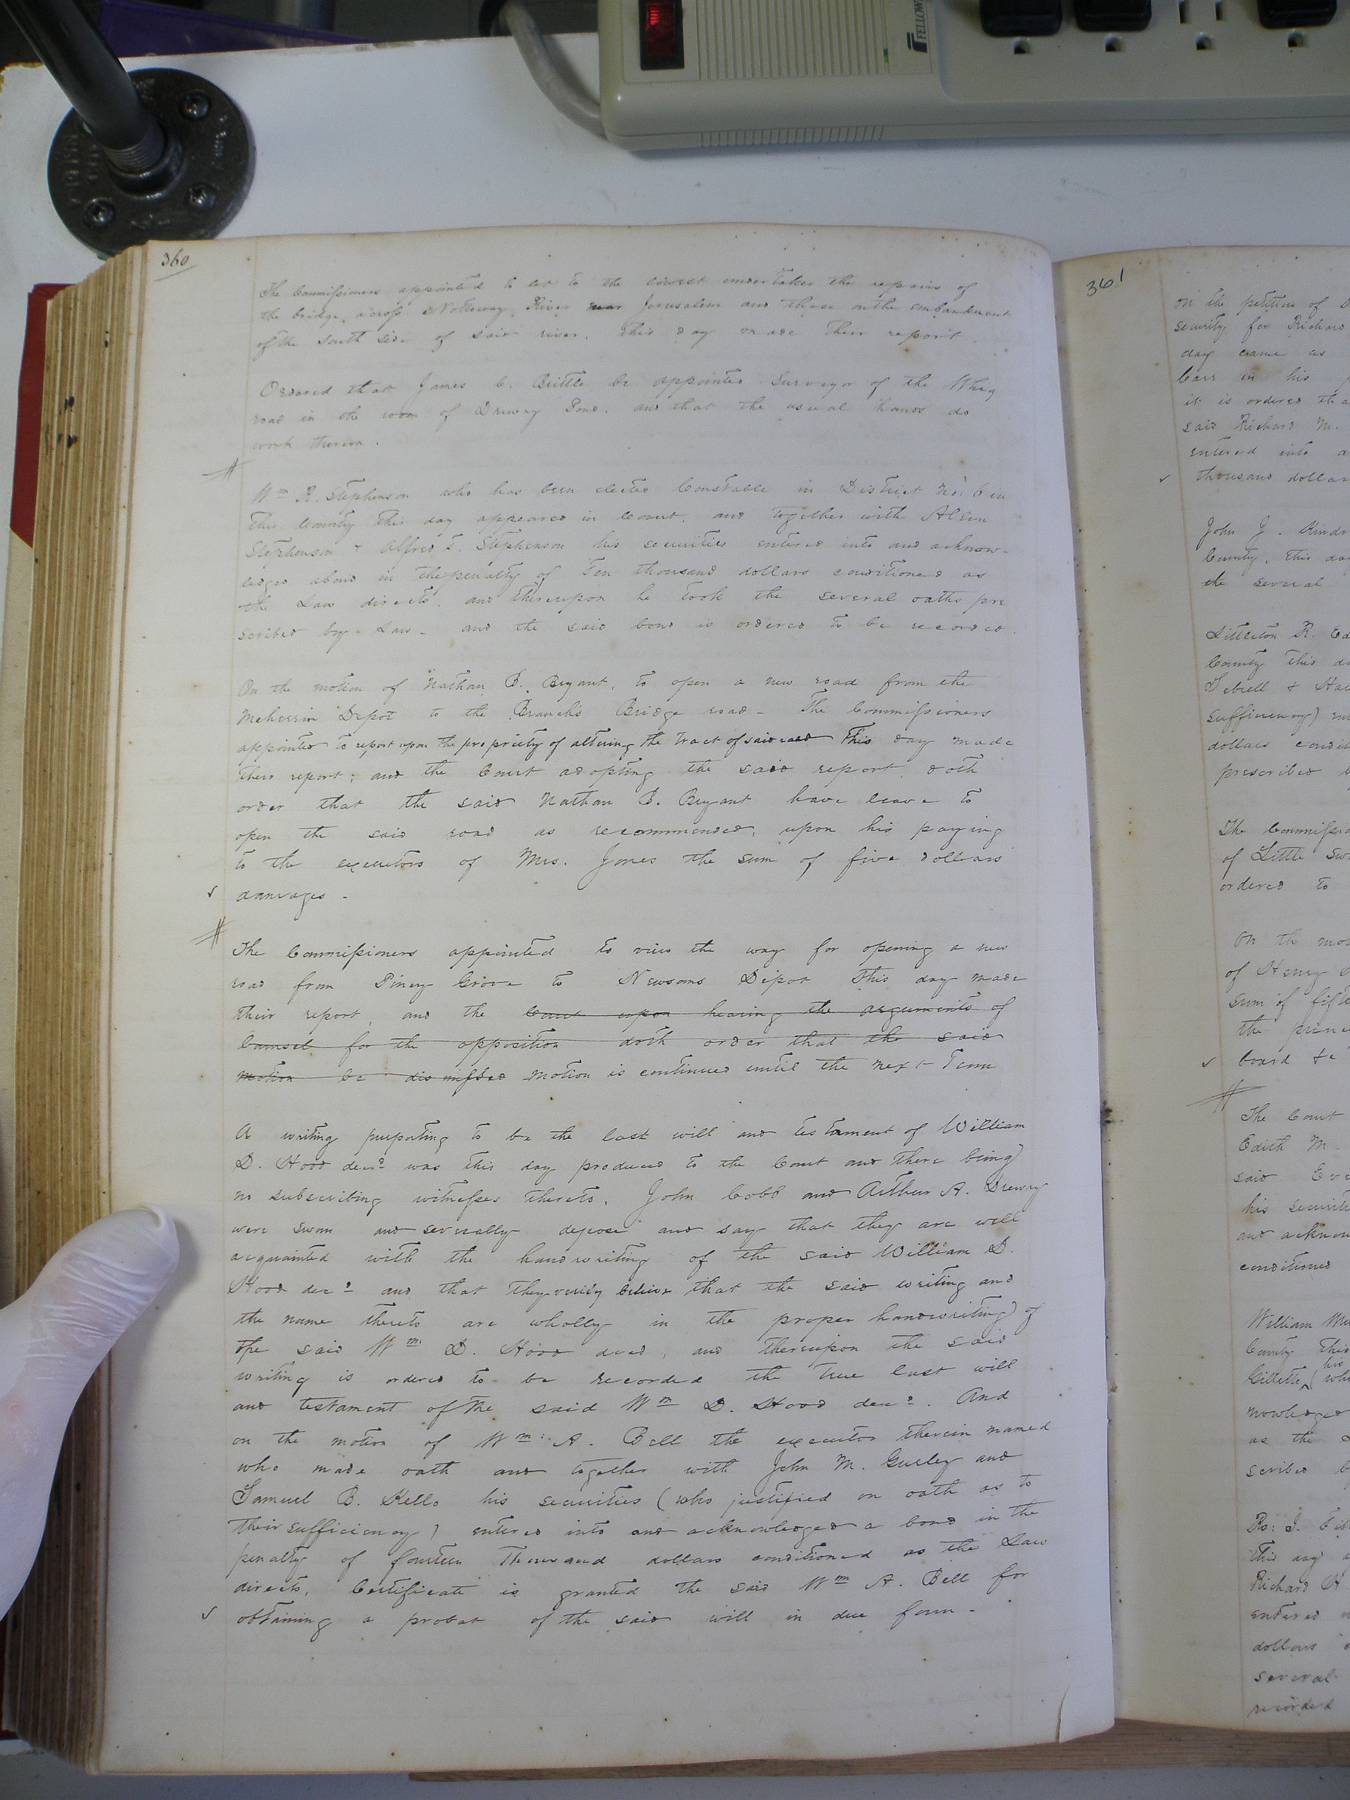 FELLOW
360
The Commissioners appointed to let to the lowest undertaker the repairs of
the bridge across Nottoway River near Jerusalem and those on the embankment
of the south side of said river, this day made their report.
Ordered that James C. Brittle be appointed Surveyor of the
road in the room of Drewry Pond. and that the usual hands do
work thereon.
Wm R. Stephenson who has been elected Constable in District No: 6 in
this County this day appeared in Court, and together with
Stephenson & Alfred T. Stephenson his securities entered into and acknow-
ledged abond in the penalty of Ten thousand dollars conditioned as
the Law directs, and thereupon he took the several oaths pre
scribed by Law. and the said bond is ordered to be recorded.
On the motion of Nathan B. Bryant, to open a new road from the
Meherrin Depot to the Branch's Bridge road - The Commissioners
appointed to report upon the propriety of altering the tract of said road This day made
their report; and the Court adopting the said report doth
order that the said Nathan B. Bryant have leave to
open the said road as recommended, upon his paying
to the executors of Mrs. Jones the sum of five dollars
damages -
The Commissioners appointed to view the way for opening a new
road from Piney Grove to Newsoms Depot this day made
their report, and the Court upon hearing the arguments of
Counsel for the opposition doth order that the said
motion be dismissed motion is continued until the next Term
A writing purporting to be the last will and testament of William
D. Hood decd was this day produced to the Court and there being
no subscribing witnesses thereto, John Cobb and Arthur A. Drewry
were sworn and severally depose and say that they are well
acquainted with the handwriting of the said William D.
Hood decd and that they verily believe that the said writing and
the name thereto are wholly in the proper handwriting of
the said Wm D. Hood decd, and thereupon the said
writing is ordered to be recorded the true last will
and testament of the said Wm D. Hood decd. And
on the motion of Wm: A. Bell the executor therein named
who made oath and together with John M. Gurley and
Samuel B. Kello his securities (who justified on oath as to
their sufficiency) entered into and acknowledged a bond in the
penalty of fourteen Thousand dollars conditioned as the Law
directs, Certificate is granted the said Wm A. Bell for
obtaining a probat of the said will in due form -
361
on the petition of
security for Richard
day came as
Carr in his
it is ordered tha
said Richard M.
entered into a
thousand dollar
John J. Kindr
County, this da
the several
Littleton R. Ed
County this d
Sebrell & Ha
sufficiency) en
dollars condit
prescribed b
The Commissio
of Little Sw
ordered to
On the mo
of Henry
sum of fift
the
board &c
The Court
Edith M.
said
his securit
and acknow
conditioned
William
County this
Gillette, his (who
nowledged
as the
scribed b
Ro: J.
this day
Richard H.
entered
dollars
several
recorded